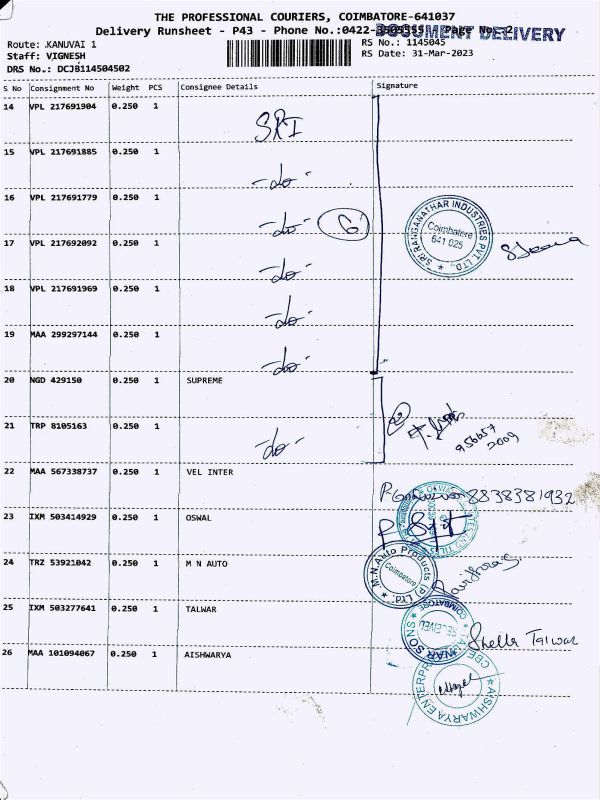 THE PROFESSIONAL COURIERS, COIMBATORE-641037
Delivery Runsheet - P43 - Phone No.:0422- Page No.:2
DOCUMENT DELIVERY
Route: KANUVAI 1
RS No.: 1145045
Staff: VIGNESH
RS Date: 31-Mar-2023
DRS No.: DCJB114504502
S No Consignment No Weight PCS Consignee Details Signature
14 VPL 217691904 0.250 1 SRI
15 VPL 217691885 0.250 1 -do-
16 VPL 217691779 0.250 1 -do- 6
17 VPL 217692092 0.250 1 -do-
18 VPL 217691969 0.250 1 -do-
19 MAA 299297144 0.250 1 -do-
SRI RANGANATHAR INDUSTRIES PVT. LTD.
Coimbatore
641 025
20 NGD 429150 0.250 1 SUPREME
21 TRP 8105163 0.250 1 -do-
2
956657
2009
22 MAA 567338737 0.250 1 VEL INTER
8838381932
23 IXM 503414929 0.250 1 OSWAL
24 TRZ 53921042 0.250 1 M N AUTO
M.N.Auto Products (P) Ltd.
Coimbatore
25 IXM 503277641 0.250 1 TALWAR
COIMBATORE
RECEIVED
Shella Talwar
26 MAA 101094067 0.250 1 AISHWARYA
AISHWARYA ENTERPR
CBE